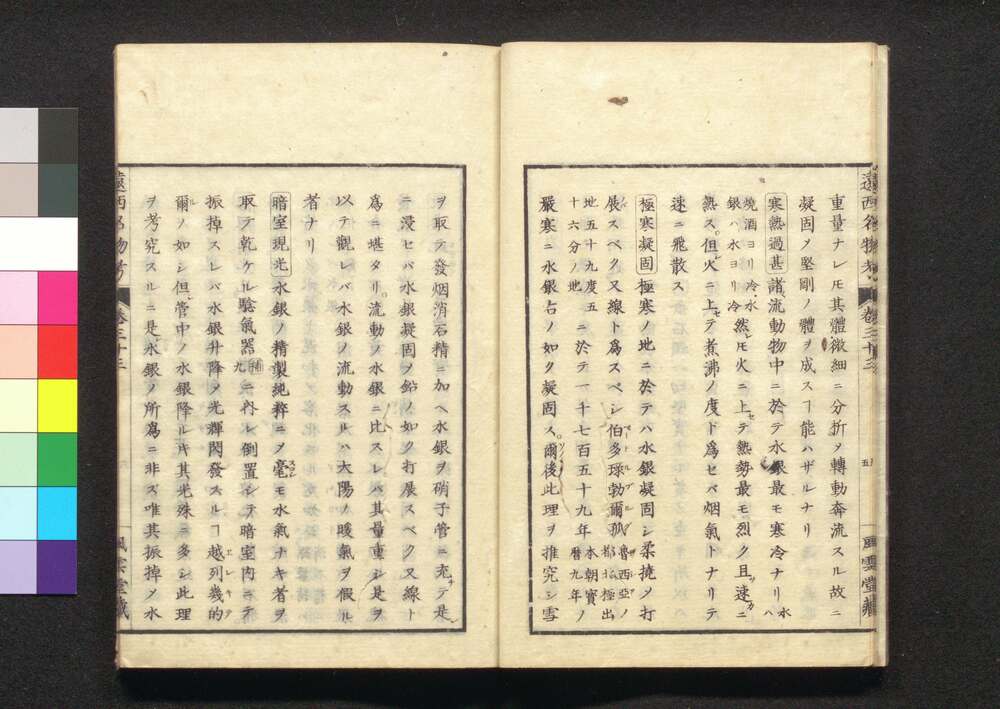 重量ナレㇳモ其體微細ニ分折乄轉動奔流スル故ニ
凝固ノ堅剛ノ體ヲ成スヿ能ハザルナリ
寒熱過甚 諸流動物中ニ於テ水銀最モ寒冷ナリ 水ハ
燒酒ヨリ冷水
銀ハ水ヨリ冷 然レㇳモ火ニ上セテ熱勢最モ烈ク且ツ速カニ
熱ス。但シ火ニ上セテ煮沸ノ度ㇳ爲セバ烟氣トナリテ
速ニ飛散ス
極寒凝固 極寒ノ地ニ於テハ水銀凝固シ柔撓乄打
展スベク又線ト爲スベシ伯多琭勃爾孤 魯西亞ノ
都北極出
地五十九度五
十六分ノ地 ニ於テ一千七百五十九年 本朝寶
曆九年ノ
嚴寒ニ水銀石ノ如ク凝固ス。爾後此理ヲ推究シ雪
遠西名物考 卷三十三 五 風雲堂藏
ヲ取テ發烟消石精ニ加ヘ水銀ヲ硝子管ニ充テ是
ニ浸セバ水銀凝固乄鉛ノ如ク打展スベク又線ト
爲ニ堪タリ。流動ノ水銀ニ比スレバ其量重シ是ヲ
以テ觀レバ水銀ノ流動スルハ大陽ノ暖氣ヲ假ル
者ナリ
暗室現光 水銀ノ精製純粹ニ乄毫モ水氣ナキ者ヲ
取テ乾ケル驗氣器 補
九 ニ納レ倒置シテ暗室内ニテ
振掉スレバ水銀升降乄光輝閃發スルヿ越列幾的
爾ノ如シ但シ管中ノ水銀降ルㇳキ其光殊ニ多シ此理
ヲ考究スルニ是水銀ノ所爲ニ非ズ唯其振掉乄水
遠西名物考 卷三十三 風雲堂藏